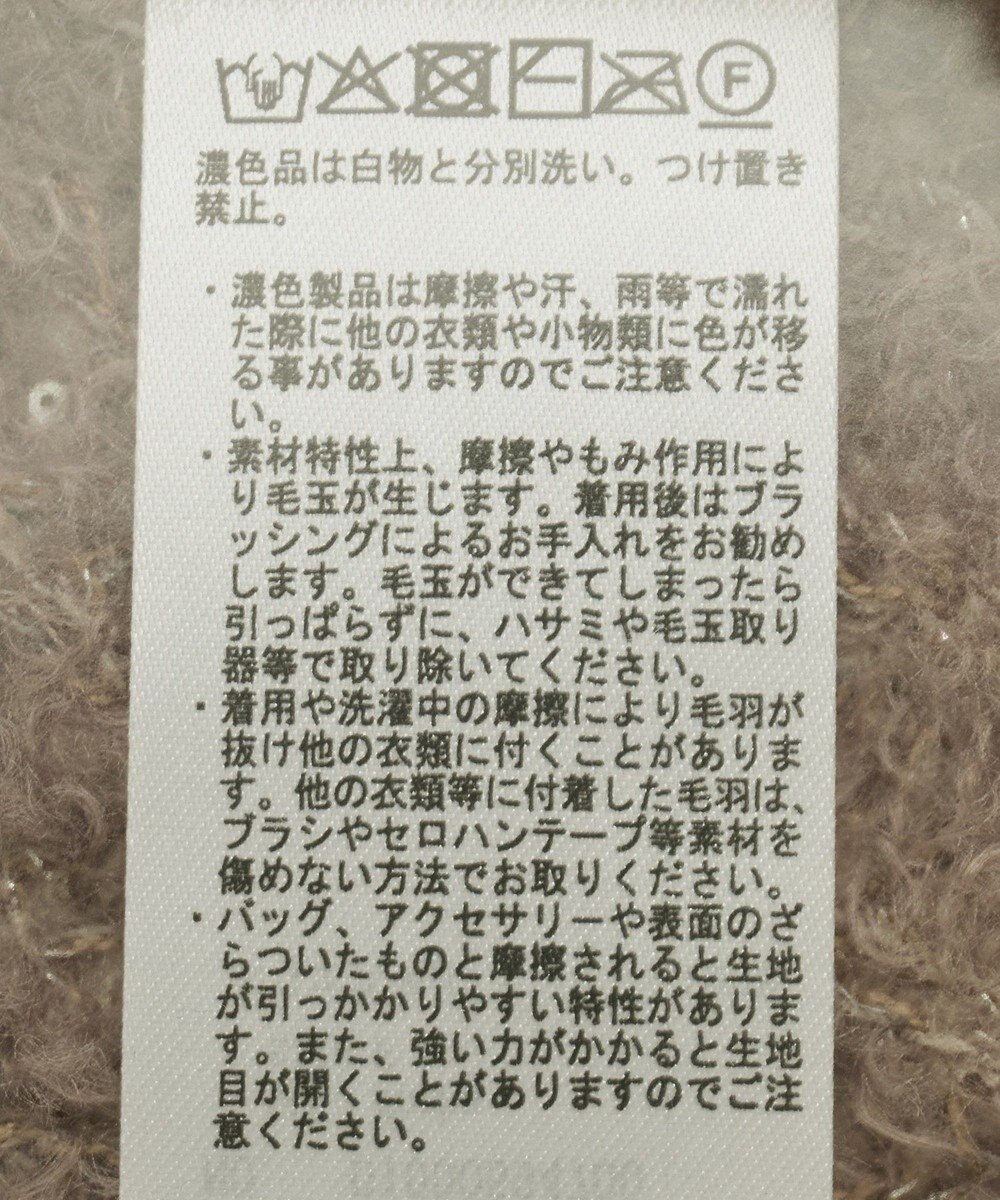 F
濃色品は白物と分別洗い。つけ置き
禁止。
・濃色製品は摩擦や汗、雨等で濡れ
た際に他の衣類や小物類に色が移
る事がありますのでご注意くださ
い。
・素材特性上、摩擦やもみ作用によ
り毛玉が生じます。着用後はブラ
ッシングによるお手入れをお勧め
します。毛玉ができてしまったら
引っぱらずに、ハサミや毛玉取り
器等で取り除いてください。
・着用や洗濯中の摩擦により毛羽が
抜け他の衣類に付くことがありま
す。他の衣類等に付着した毛羽は、
ブラシやセロハンテープ等素材を
傷めない方法でお取りください。
・バッグ、アクセサリーや表面のざ
らついたものと摩擦されると生地
が引っかかりやすい特性がありま
す。また、強い力がかかると生地
目が開くことがありますのでご注
意ください。